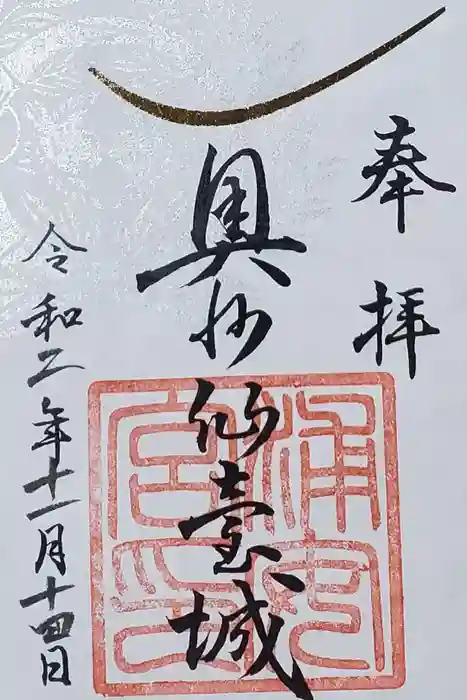 奉拝
奥州仙臺城
浦安宮印
令和二年十一月十四日